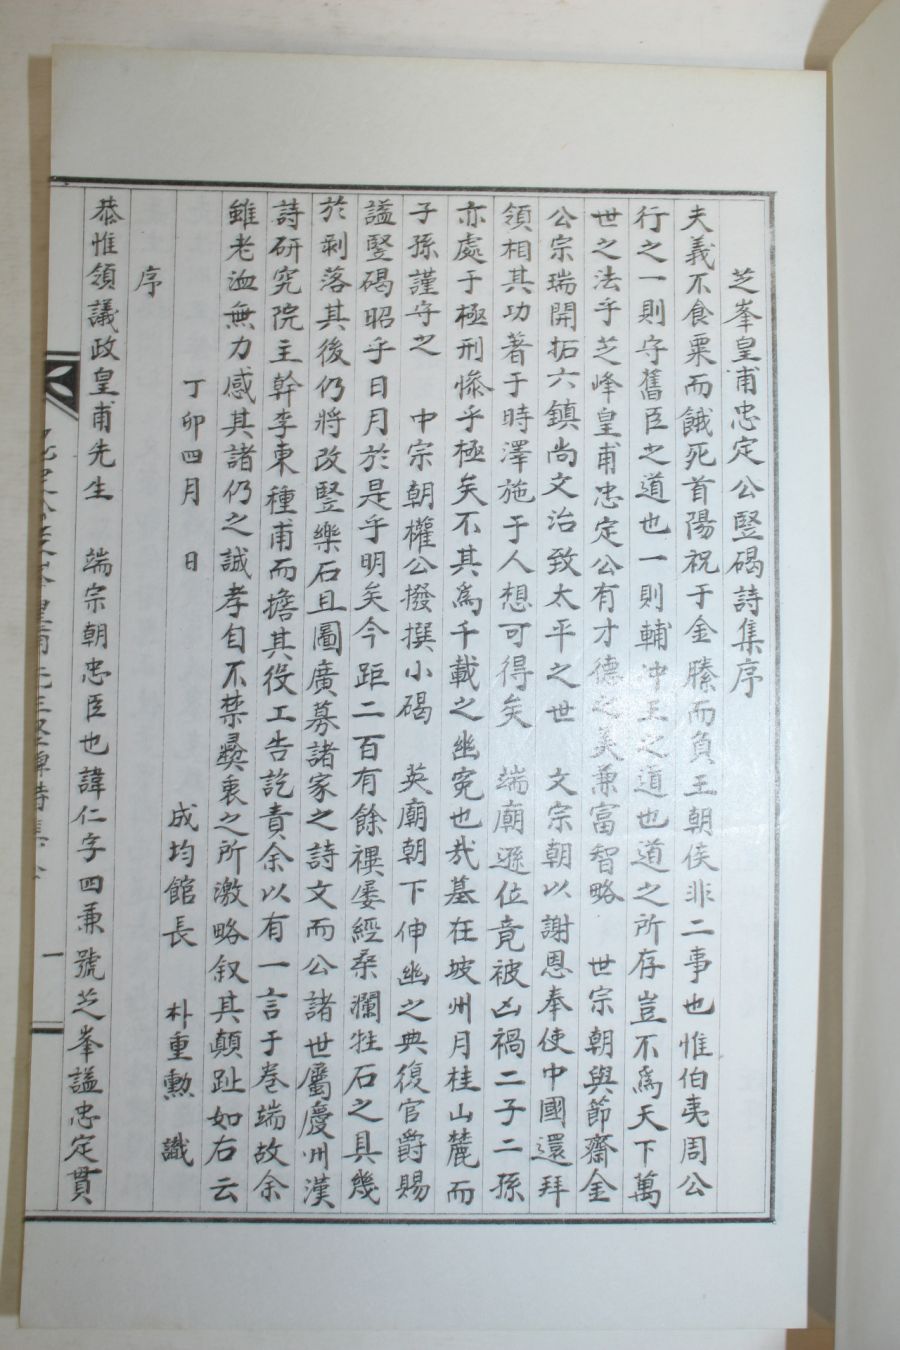 芝峯皇甫忠定公豎碣詩集序
夫義不食粟而餓死首陽祝于金縢而負王朝侯非二事也惟伯夷周公
行之一則守舊臣之道也一則輔冲王之道也道之所存豈不爲天下萬
世之法乎芝峰皇甫忠定公有才德之美兼富智略　世宗朝與節齋金
公宗瑞開拓六鎮尚文治致太平之世　文宗朝以謝恩奉使中國還拜
領相其功著于時澤施于人想可得矣　端廟遜位竟被凶禍二子二孫
亦處于極刑慘乎極矣不其爲千載之幽寃也哉墓在坡州月桂山麓而
子孫謹守之　中宗朝權公撥撰小碣　英廟朝下伸幽之典復官爵賜
諡豎碣昭乎日月於是乎明矣今距二百有餘禩屡經桑瀾牲石之具幾
於剥落其後仍將改豎樂石且圖廣募諸家之詩文而公諸世屬慶州漢
詩研究院主幹李東種甫而擔其役工告訖責余以有一言于卷端故余
雖老洫無力感其諸仍之誠孝自不禁彛衷之所激略叙其顛趾如右云
丁卯四月　日　成均館長　朴重勳　識
序
恭惟領議政皇甫先生　端宗朝忠臣也諱仁字四兼號芝峯諡忠定貫
一